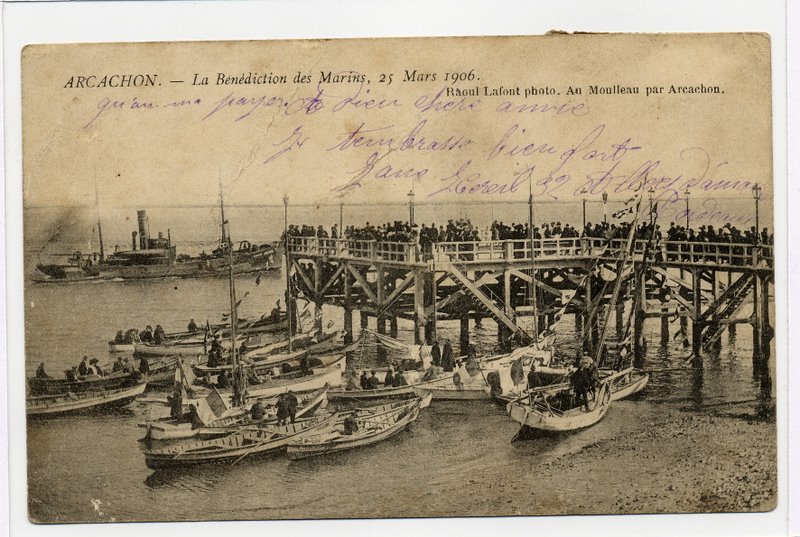 ARCACHON. — La Bénédiction des Marins, 25 Mars 1906.
Raoul Lafont photo. Au Moulleau par Arcachon.
qu'on ma payer. Dieu chère amie
Je t'embrasse bien fort
32